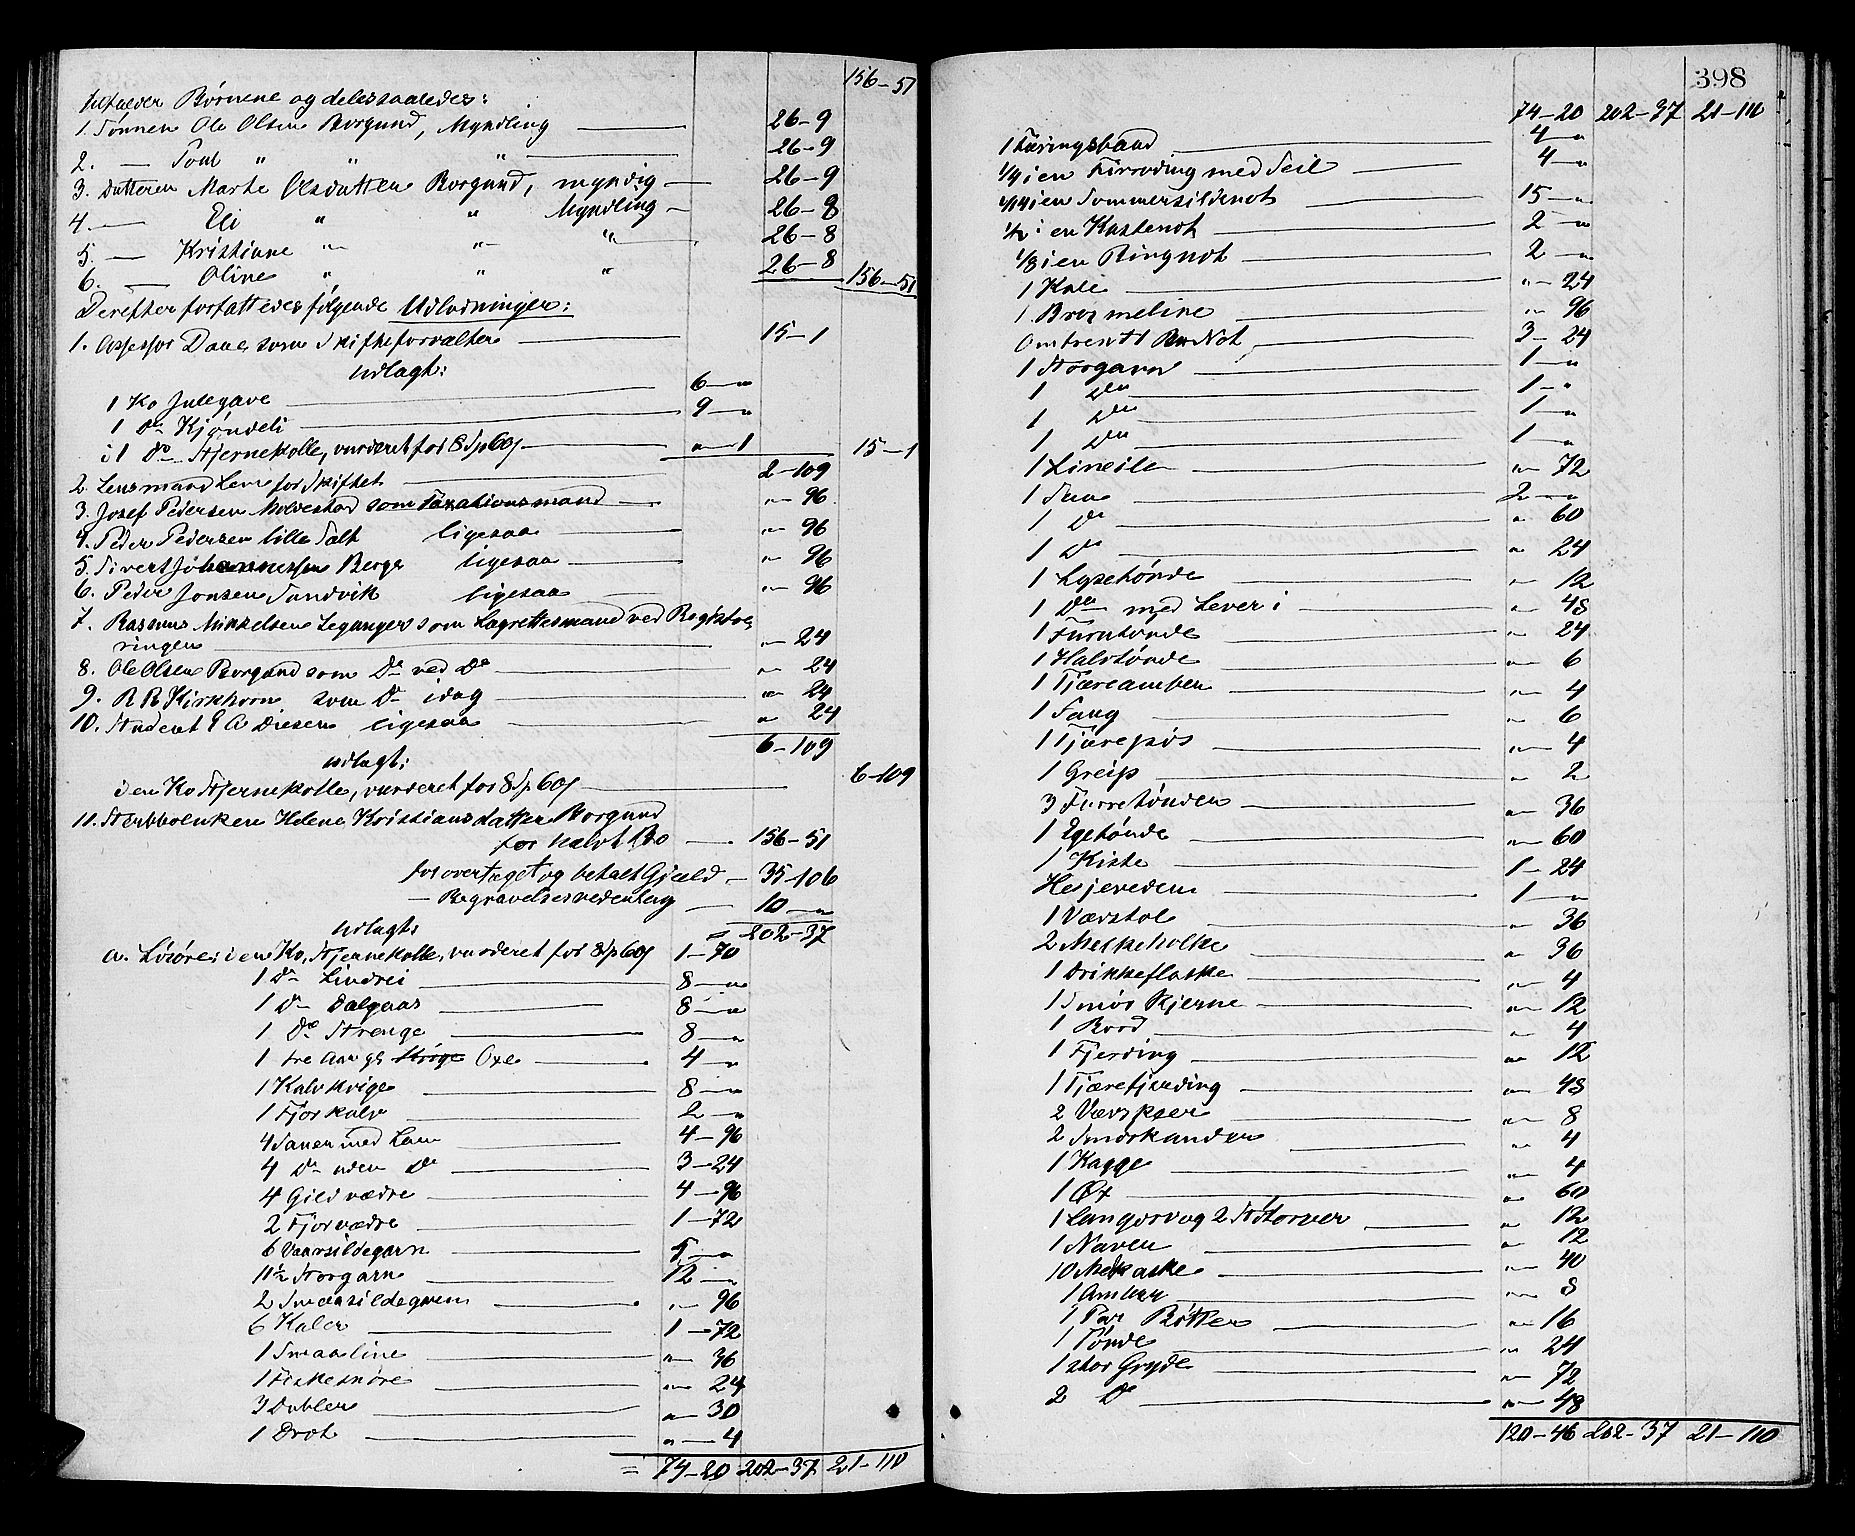 156-51
tilfalder Børnene og deles saaledes:
1. Sønnen Ole Olsen Borgund, Myndling 26-9
2. — Poul " " " 26-9
3. Datteren Marte Olsdatter Borgund, myndig 26-9
4. — Eli " " Myndling 26-8
5. — Kristiane " " " 26-8
6. — Oline " " " 26-8 156-51
Derefter forfattedes følgende Udlodninger:
1. Assessor Daae som Skifteforvalter 15-1
udlagt:
1 Ko Julegave 6-"
1 Do Kjøndeli 9-"
i 1 Do Stjernekolle, vurderet for 8 Sp 60s "-1 15-1
2. Lensmand Lem for Skiftet 2-109
3. Josef Pedersen Molvestad som Taxationsmand "-96
4. Peder Pedersen lille Salt ligesaa "-96
5. Sivert Johannessen Berge ligesaa "-96
6. Peder Jonsen Sandvik ligesaa "-96
7. Rasmus Mikkelsen Leganger som Lagrettesmand ved Registre-
ringen "-24
8. Ole Olsen Borgund som Do ved Do "-24
9. R R Kirkhorn som Do idag "-24
10. Student E A Diesen ligesaa "-24
6-109
udlagt:
i den Ko Stjernekolle, vurderet for 8 Sp 60s 6-109
11. Stervboenken Helene Kristiansdatter Borgund
for halvt Bo 156-51
for overtaget og betalt Gjæld 35-106
— Begravelsesvedentag 10-"
= 202-37
udlagt:
a. Løsøre: i en Ko, Stjernekolle, vurderet for 8 Sp 60s 1-70
1 Do Lindrei 8-"
1 Do Dalgaas 8-"
1 Do Strenge 8-"
1 tre Aar gl. Oxe 4-"
1 Kalvkvige 8-"
1 Fjorkalv 2-"
4 Sauer med Lam 4-96
4 Do uden Do 3-24
4 Gildvædre 4-96
2 Fjorvædre 1-72
6 Vaarsildegarn 5-"
11½ Storgarn 12-"
2 Smaasildegarn "-96
6 Kaler 1-72
1 Smaaline "-36
1 Fiskesnøre "-24
3 Dubler "-30
1 Drot "-4
= 74-20 202-37 21-110
398
74-20 202-37 21-110
1 Færingsbaad 4-"
1/4 i en Firroding med Seil 4-"
4/14 i en Sommersildenot 15-"
1/2 i en Kastenot 2-"
1/8 i en Ringnot 2-"
1 Kale "-24
1 Brosmeline "-96
Omtrent 1 Rum Not 3-24
1 Storgarn 1-"
1 Do 1-"
1 Do 1-"
1 Do 1-"
1 Lineile "-72
1 Saa 2-"
1 Do "-60
1 Do "-24
1 Lysetønde "-12
1 Do med Lever i "-48
1 Furutønde "-24
1 Halvtønde "-6
1 Tjæreamber "-4
1 Fang "-6
1 Tjærepøs "-4
1 Greip "-2
3 Furretønder "-36
1 Egetønde "-60
1 Kiste 1-24
Hesjeveden 1-"
1 Vævstol "-36
2 Melkeholke "-36
1 Drikkeflaske "-4
1 Smør Kjerne "-12
1 Bord "-4
1 Fjerding "-12
1 Tjærefjerding "-48
2 Vævskeer "-8
2 Smørkander "-4
1 Kagge "-4
1 Øx "-60
1 Langorv og 2 Stutorver "-12
1 Naver "-12
10 Melkaske "-40
1 Ambar "-8
1 Par Bøtter "-16
1 Tønde "-24
1 stor Gryde "-72
2 Do "-48
120-46 202-37 21-110